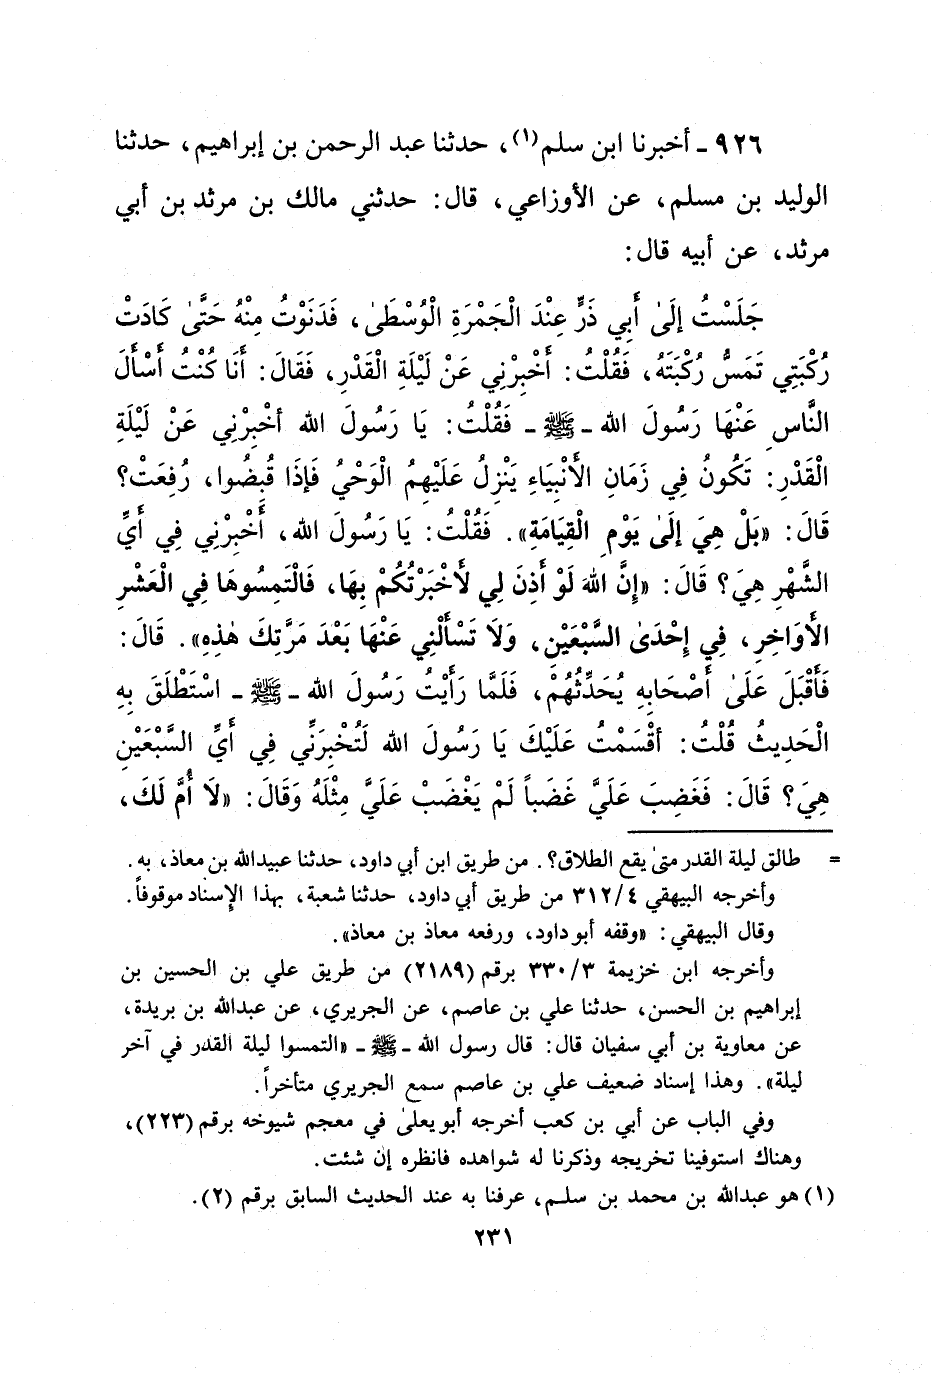 ٩٢٦ ـ أخبرنا ابن سلم(١)، حدثنا عبد الرحمن بن إبراهيم، حدثنا
الوليد بن مسلم، عن الأوزاعي، قال: حدثني مالك بن مرثد بن أبي
مرثد، عن أبيه قال:
جَلَسْتُ إِلَىٰ أَبِي ذَرٍّ عِنْدَ الْجَمْرَةِ الْوُسْطَىٰ، فَدَنَوْتُ مِنْهُ حَتَّىٰ كَادَتْ
رُكْبَتِي تَمَسُّ رُكْبَتَهُ، فَقُلْتُ: أَخْبِرْنِي عَنْ لَيْلَةِ الْقَدْرِ، فَقَالَ: أَنَا كُنْتُ أَسْأَلَ
النَّاسِ عَنْهَا رَسُولَ الله ـ ﷺ ـ فَقُلْتُ: يَا رَسُولَ الله أخْبِرْنِي عَنْ لَيْلَةِ
الْقَدْرِ: تَكُونُ فِي زَمَانِ الأَنْبِيَاءِ يَنْزِلُ عَلَيْهِمُ الْوَحْيُ فَإِذَا قُبِضُوا، رُفِعَتْ؟
قَالَ: «بَلْ هِيَ إِلَىٰ يَوْمِ الْقِيَامَةِ». فَقُلْتُ: يَا رَسُولَ الله، أَخْبِرْنِي فِي أَيِّ
الشَّهْرِ هِيَ؟ قَالَ: «إِنَّ اللهَ لَوْ أَذِنَ لِي لأَخْبَرْتُكُمْ بِهَا، فَالْتَمِسُوهَا فِي الْعَشْرِ
الأَوَاخِرِ، فِي إِحْدَىٰ السَّبْعَيْنِ، وَلَا تَسْأَلْنِي عَنْهَا بَعْدَ مَرَّتِكَ هٰذِهِ». قَالَ:
فَأَقْبَلَ عَلَىٰ أَصْحَابِهِ يُحَدِّثُهُمْ، فَلَمَّا رَأَيْتُ رَسُولَ الله ـ ﷺ ـ اسْتَطْلَقَ بِهِ
الْحَدِيثُ قُلْتُ: أقْسَمْتُ عَلَيْكَ يَا رَسُولَ الله لَتُخْبِرَنِّي فِي أَيِّ السَّبْعَيْنِ
هِيَ؟ قَالَ: فَغَضِبَ عَلَيَّ غَضَباً لَمْ يَغْضَبْ عَلَيَّ مِثْلَهُ وَقَالَ: «لَا أُمَّ لَكَ،
= طالق ليلة القدر متىٰ يقع الطلاق؟. من طريق ابن أبي داود، حدثنا عبيدالله بن معاذ، به.
وأخرجه البيهقي ٣١٢/٤ من طريق أبي داود، حدثنا شعبة، بهذا الإسناد موقوفاً.
وقال البيهقي: «وقفه أبو داود، ورفعه معاذ بن معاذ».
وأخرجه ابن خزيمة ٣٣٠/٣ برقم (٢١٨٩) من طريق علي بن الحسين بن
إبراهيم بن الحسن، حدثنا علي بن عاصم، عن الجريري، عن عبدالله بن بريدة،
عن معاوية بن أبي سفيان قال: قال رسول الله ـ ﷺ ـ «التمسوا ليلة القدر في آخر
ليلة». وهذا إسناد ضعيف علي بن عاصم سمع الجريري متأخراً.
وفي الباب عن أبي بن كعب أخرجه أبو يعلىٰ في معجم شيوخه برقم (٢٢٣)،
وهناك استوفينا تخريجه وذكرنا له شواهده فانظره إن شئت.
(١) هو عبدالله بن محمد بن سلم، عرفنا به عند الحديث السابق برقم (٢).
٢٣١